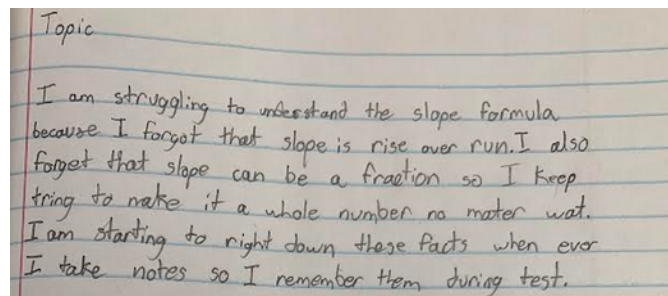 Topic
I am struggling to understand the slope formula
because I forgot that slope is rise over run. I also
forget that slope can be a fraction so I keep
tring to make it a whole number no mater wat.
I am starting to right down these facts when ever
I take notes so I remember them during test.